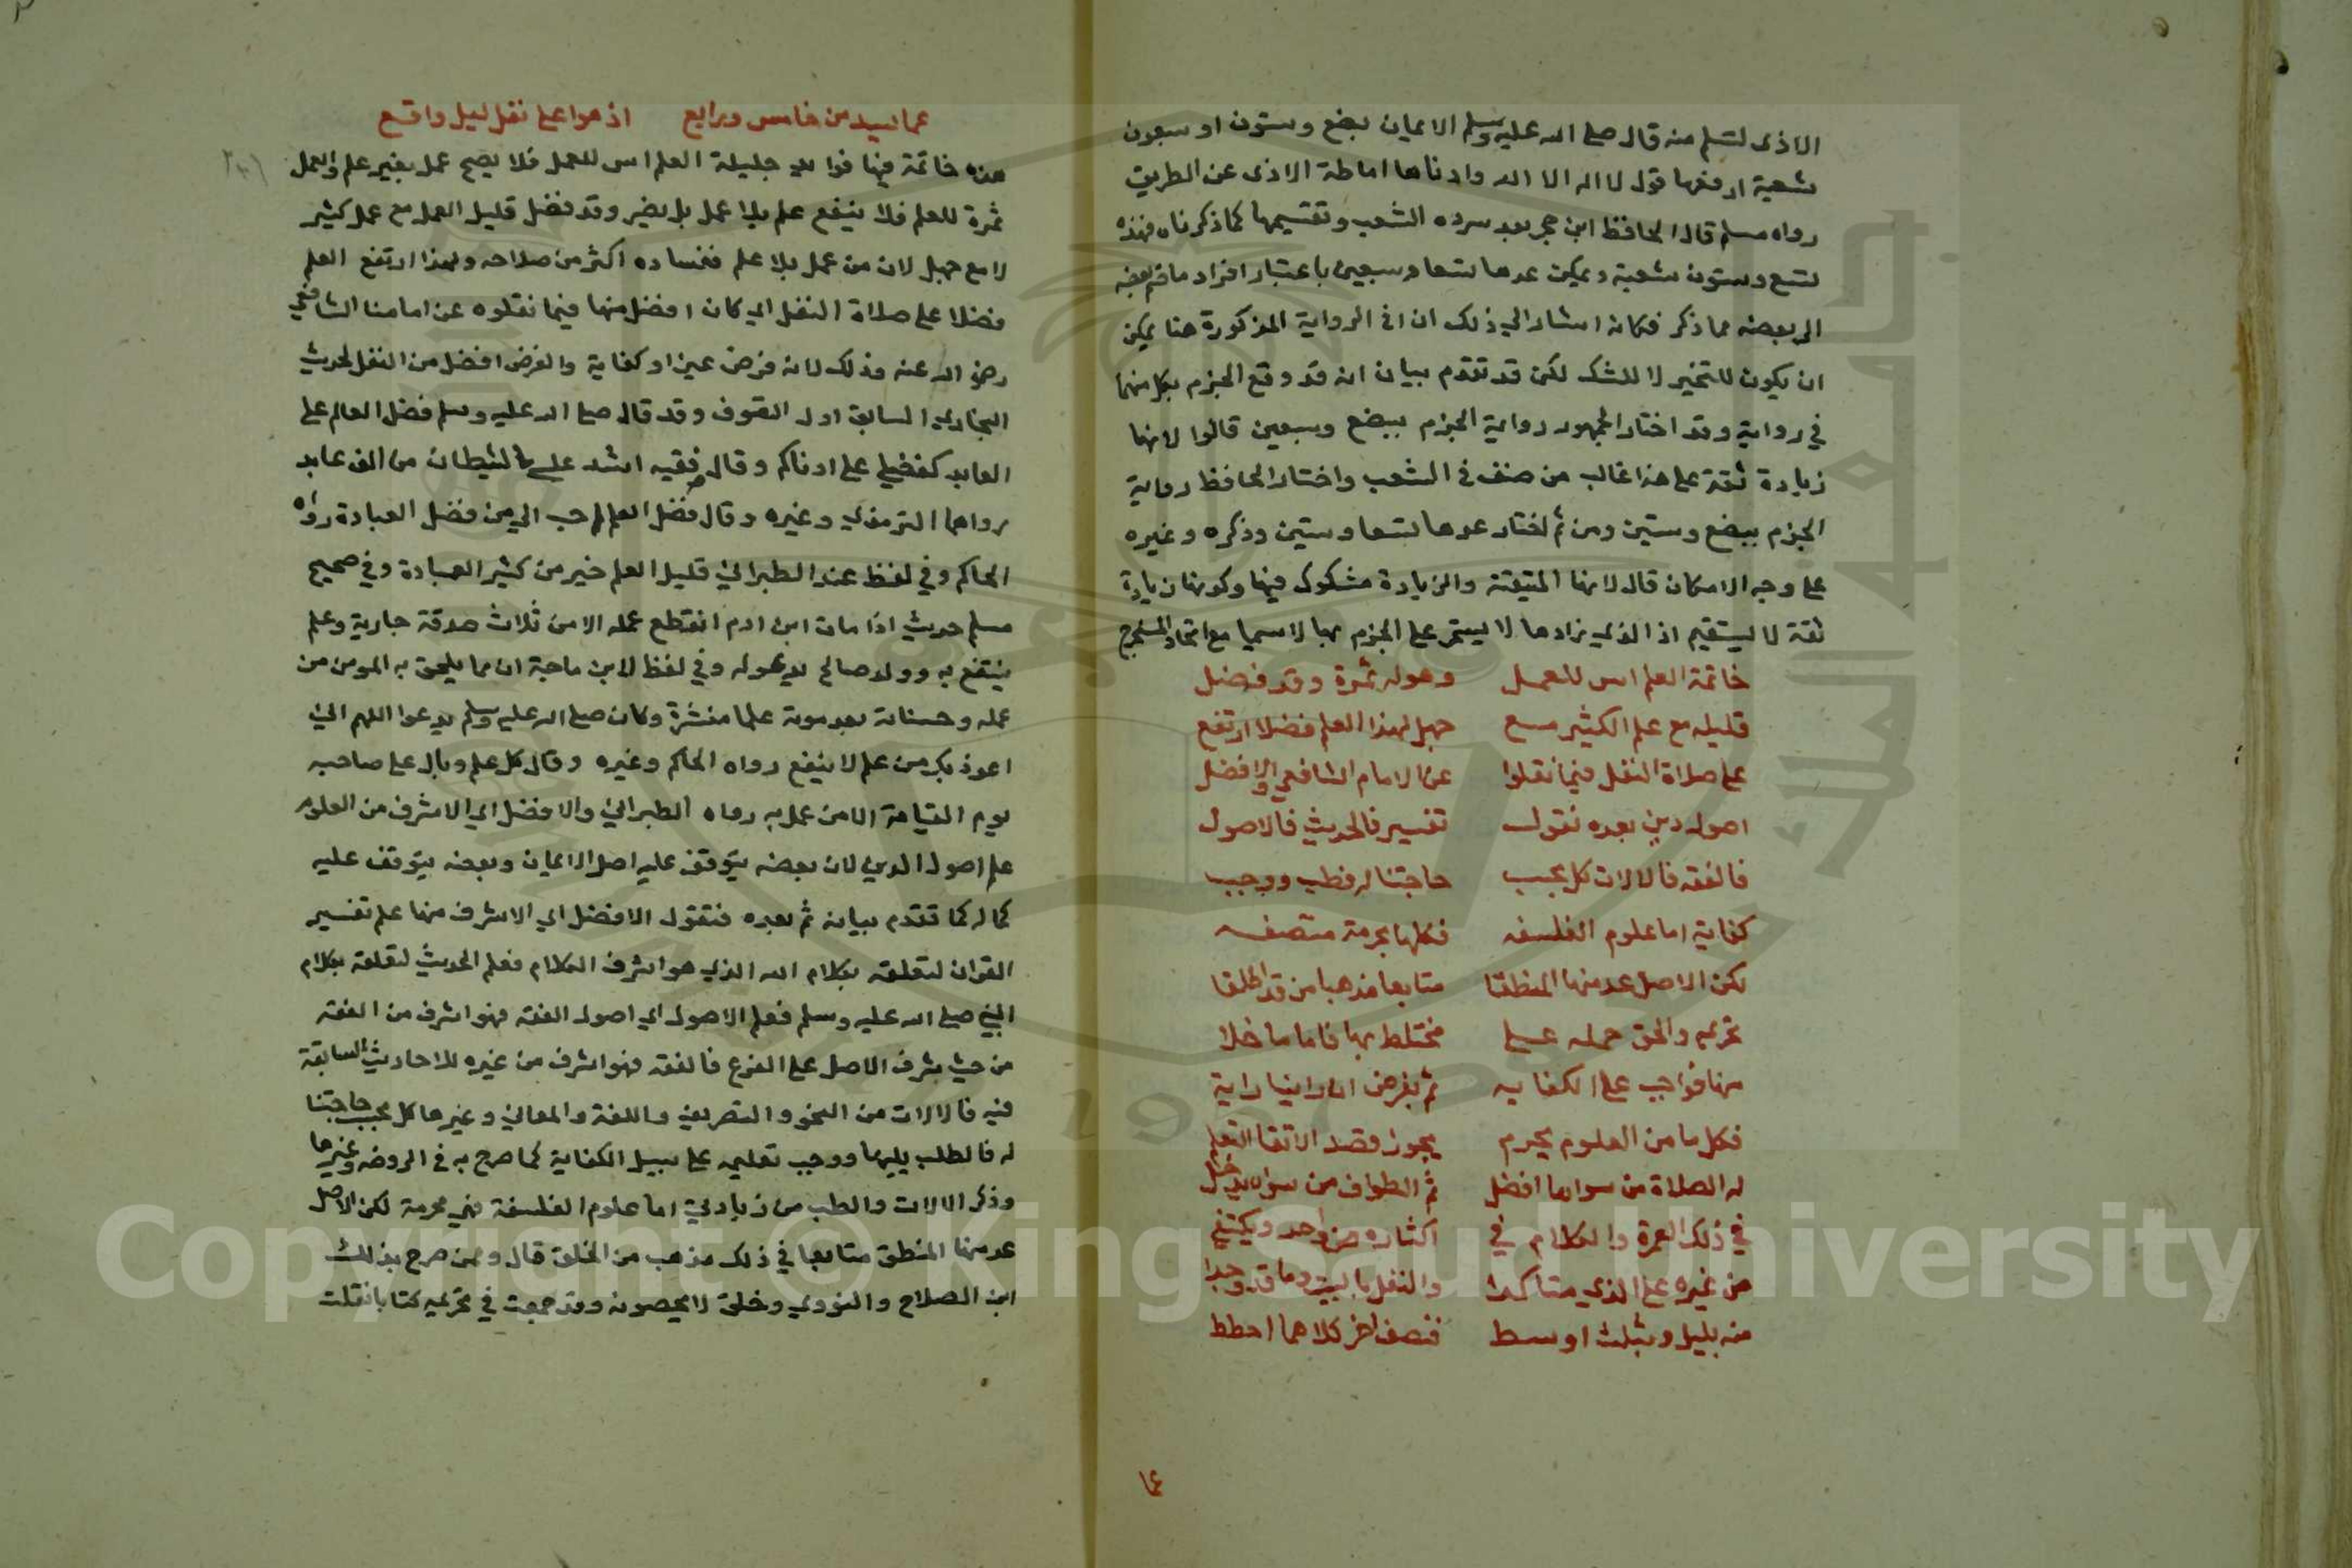 الاذى لمسلم منه قال صلى الله عليه وسلم الايمان بضع وستون او سبعون
شعبة ارفعها قول لا اله الا الله وادناها اماطة الاذى عن الطريق
رواه مسلم قال الحافظ ابن حجر بعد سرده الشعب وتقسيمها كما ذكرناه فهذه
تسع وستون شعبة ويمكن عدها تسعا وسبعين باعتبار افراد ما ضم بعضه
الى بعضه مما ذكر فكانه اشار الى ذلك ان او في الرواية المذكورة هنا يمكن
ان يكون للتخير لا للشك لكن قد تقدم بيان انه قد وقع الجزم بكل منهما
في رواية وقد اختار الجمهور رواية الجزم ببضع وسبعين قالوا لانها
زيادة ثقة على هذا غالب من صنف في الشعب واختار الحافظ رواية
الجزم ببضع وستين ومن ثم اختار عدها تسعا وستين وذكره وغيره
على وجه الامكان قال لانها المتيقنة والزيادة مشكوك فيها وكونها زيادة
ثقة لا يستقيم اذ الذي زادها لا يستمر على الجزم بها لا سيما مع اتحاد المخرج
خاتمة العلم اس للعمل وهوله ثمرة وقد فضل
قليله مع علم الكثير مع جهل لهذا العلم فضلا ارتفع
على صلاة النفل فيما نقلوا عن الامام الشافعي والافضل
اصول دين بعده نقول تفسير فالحديث فالاصول
فالفقه فالالات كل بحسب حاجتنا له فطب ووجب
كفاية اما علوم الفلسفه فكلها بحرمة متصفه
لكن الاصل عد منها المنطقا متابعا مذهبا من قد اطلقا
تحريمه والحق حمله على مختلط بها فاما ما خلا
منها فواجب على الكفايه
فكل ما من العلوم يحرم يجوز قصد الاتقا التعلم
له الصلاة من سواها افضل ثم الطواف من سواه
في ذلك العمرة والكلام في اكثاره من واحد ويكتفي
من غيره على الذي متاكدا والنفل بالبيت وما قد وجدا
منه بليل وبثلث اوسط فنصف اخر كلاهما احطط
عما
عما لسيد من خامس ورابع اذ هوا على نفل ليل واقع
هذه خاتمة فيها فوايد جليلة العلم اس للعمل فلا يصح عمل بغير علم والعمل
ثمرة للعلم فلا ينفع علم بلا عمل بل يضر وقد فضل قليل العمل مع عمل كثير
لا مع جهل لان من عمل بلا علم ففساده اكثر من صلاحه ولهذا ارتفع العلم
فضلا على صلاة النفل اي كان افضل منها فيما نقلوه عن امامنا الشافعي
رضي الله عنه وذلك لانه فرض عين او كفاية والفرض افضل من النفل لحديث
البخاري السابق اول التصوف وقد قال صلى الله عليه وسلم فضل العالم على
العابد كفضلي على ادناكم وقال فقيه اشد على الشيطان من الف عابد
رواهما الترمذي وغيره وقال فضل العلم احب الي من فضل العبادة رواه
الحاكم وفي لفظ عند الطبراني قليل العلم خير من كثير العبادة وفي صحيح
مسلم حديث اذا مات ابن ادم انقطع عمله الا من ثلاث صدقة جارية وعلم
ينتفع به وولد صالح يدعوله وفي لفظ لابن ماجة ان مما يلحق به المومن من
عمله وحسناته بعد موته علما منشرة وكان صلى الله عليه وسلم يدعوا اللهم اني
اعوذ بك من علم لا ينفع رواه الحاكم وغيره وقال كل علم وبال على صاحبه
يوم القيامة الا من عمل به رواه الطبراني والافضل اي الاشرف من العلوم
علم اصول الدين لان بعضه يتوقف عليه اصل الايمان وبعضه يتوقف عليه
كماله كما تقدم بيانه ثم بعده فنقول الافضل اي الاشرف منها علم تفسير
القران لتعلقه بكلام الله الذي هو اشرف الكلام فعلم الحديث لتعلقه بكلام
النبي صلى الله عليه وسلم فعلم الاصول اي اصول الفقه فهو اشرف من الفقه
من حيث شرف الاصل على الفرع فالفقه فهو اشرف من غيره للاحاديث السابقة
فيه فالالات من النحو والتصريف واللغة والمعاني وغيرها كل بحسب حاجتنا
له فالطلب يليها ووجب تعليمه على سبيل الكفاية كما صرح به في الروضه وغيرها
وذكر الالات والطب من زيادتي اما علوم الفلسفة فهي محرمة لكن الاصل
عد منها المنطق متابعا في ذلك مذهب من الخلق قال وممن صرح بذلك
ابن الصلاح والنووي وخلق لا يحصون وقد جمعت في تحريمه كتابا نقلت
Copyright © King Saud University